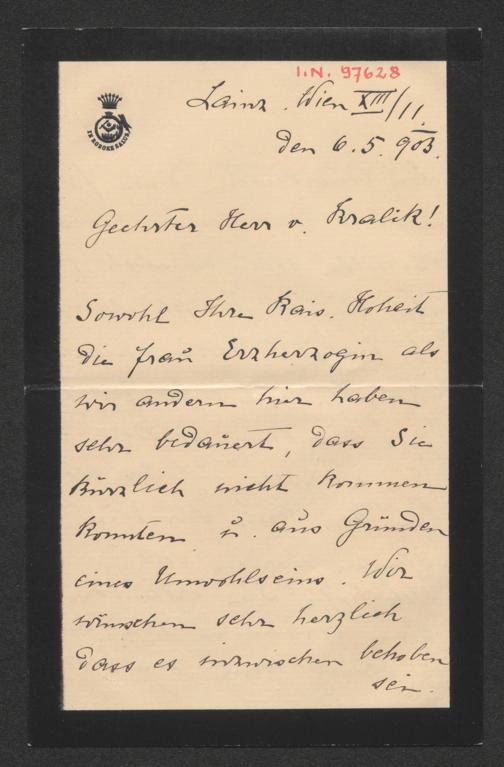 I.N. 97628
Lainz. Wien XIII/11.
den 6. 5. 903.
IN ROBORE SALUS
Geehrter Herr v. Kralik!
Sowohl Ihre Kais. Hoheit
die Frau Erzherzogin als
wir andern hier haben
sehr bedauert, dass Sie
kürzlich nicht kommen
konnten u. aus Gründen
eines Unwohlseins. Wir
wünschen sehr herzlich
dass es inzwischen behoben
sei.